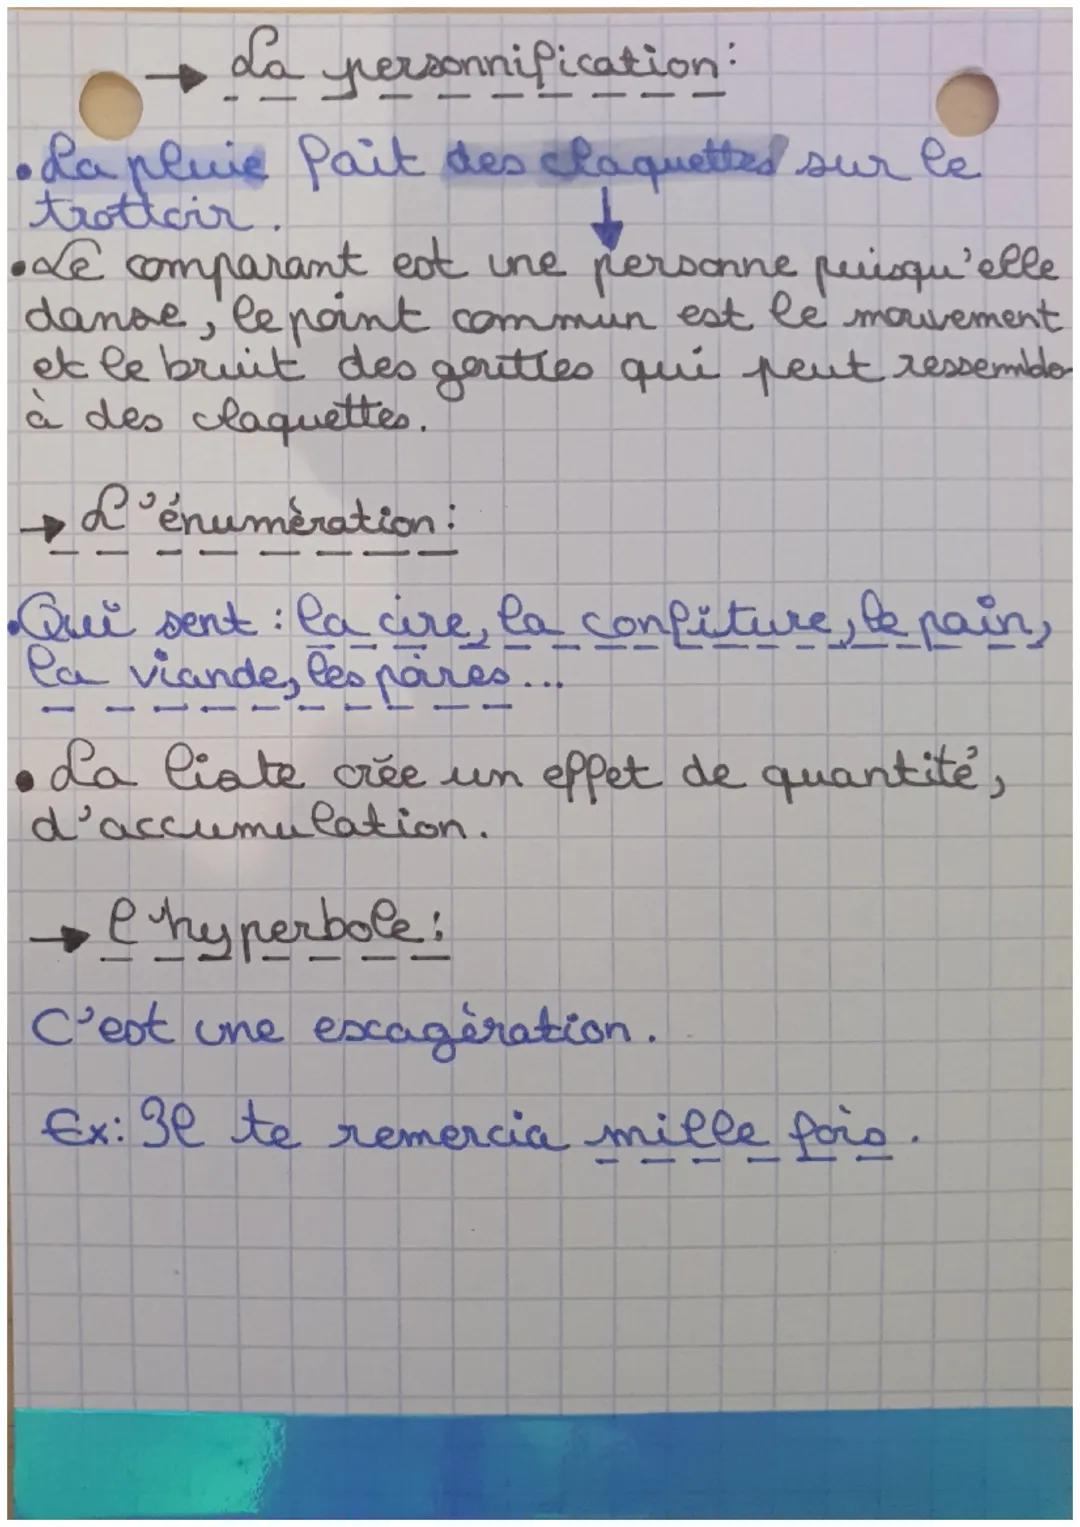 → La personnification:
• La pluie fait des claquettes sur le
trottoir.
• Le comparant est une personne puisqu'elle
danse, le point commun est le mouvement
et le bruit des gouttes qui peut ressembler
à des claquettes.
→ L'énumération:
• Qui sent : la cire, la confiture, le pain,
la viande, les poires...
• La liste crée un effet de quantité,
d'accumulation.
→ l'hyperbole:
C'est une exagération.
Ex: Il te remercia mille fois.